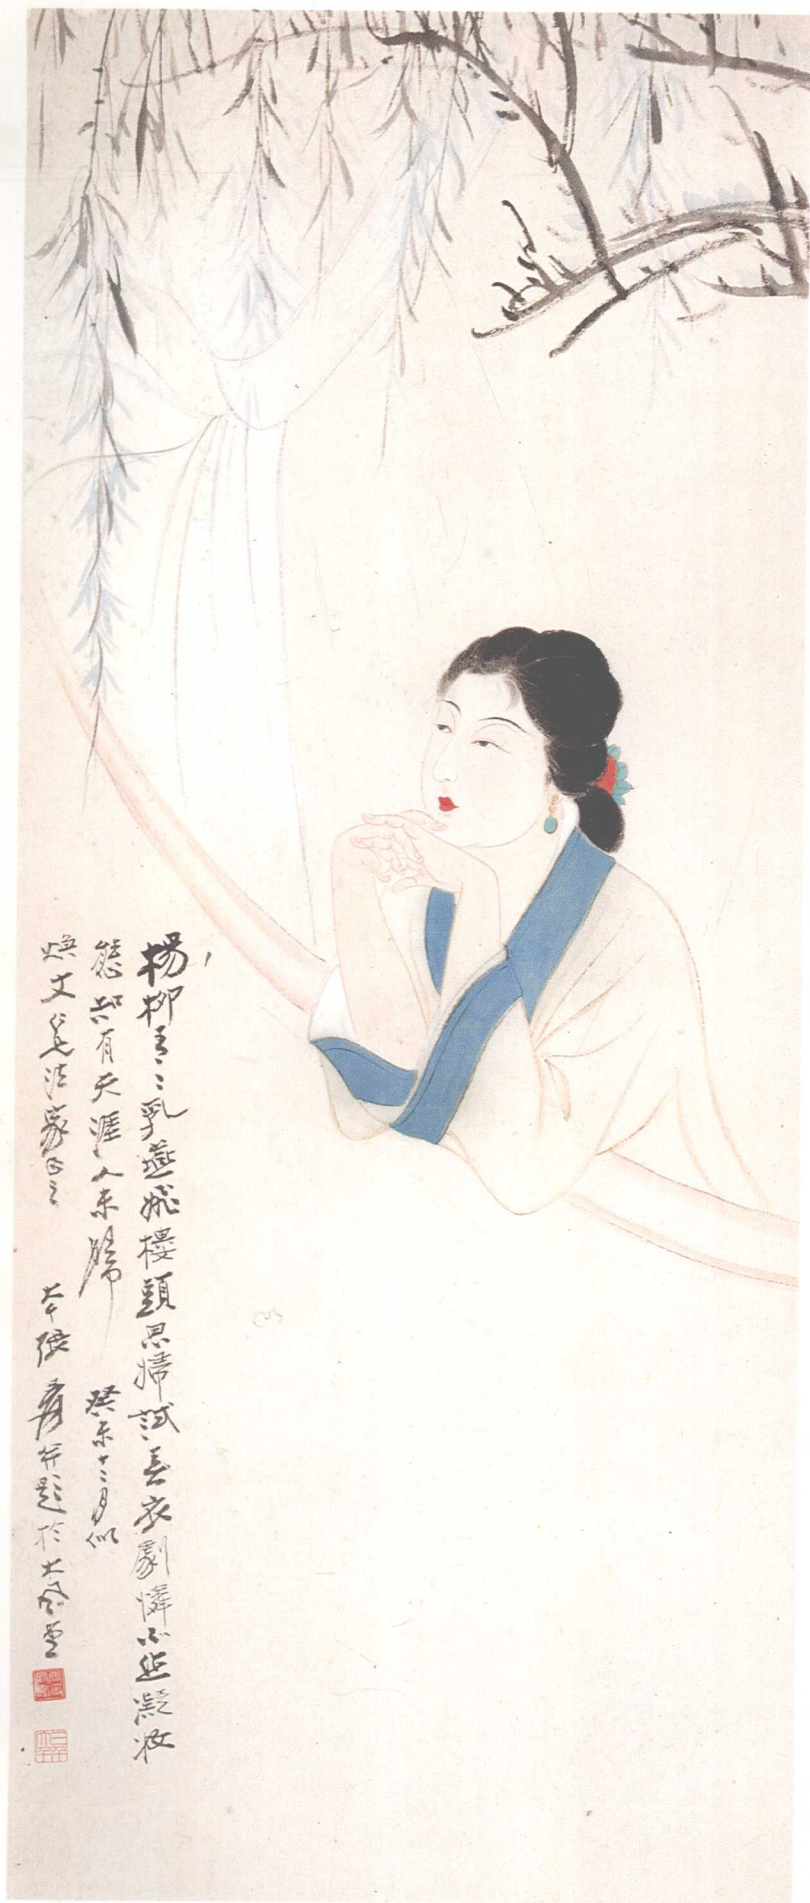 楊柳青〻乳燕飛樓頭思婦試春衣劇憐小立凝妝
態㫁有天涯人未歸 癸未十二月似
煥文仁兄法家正之 大千張爰并題於大風堂